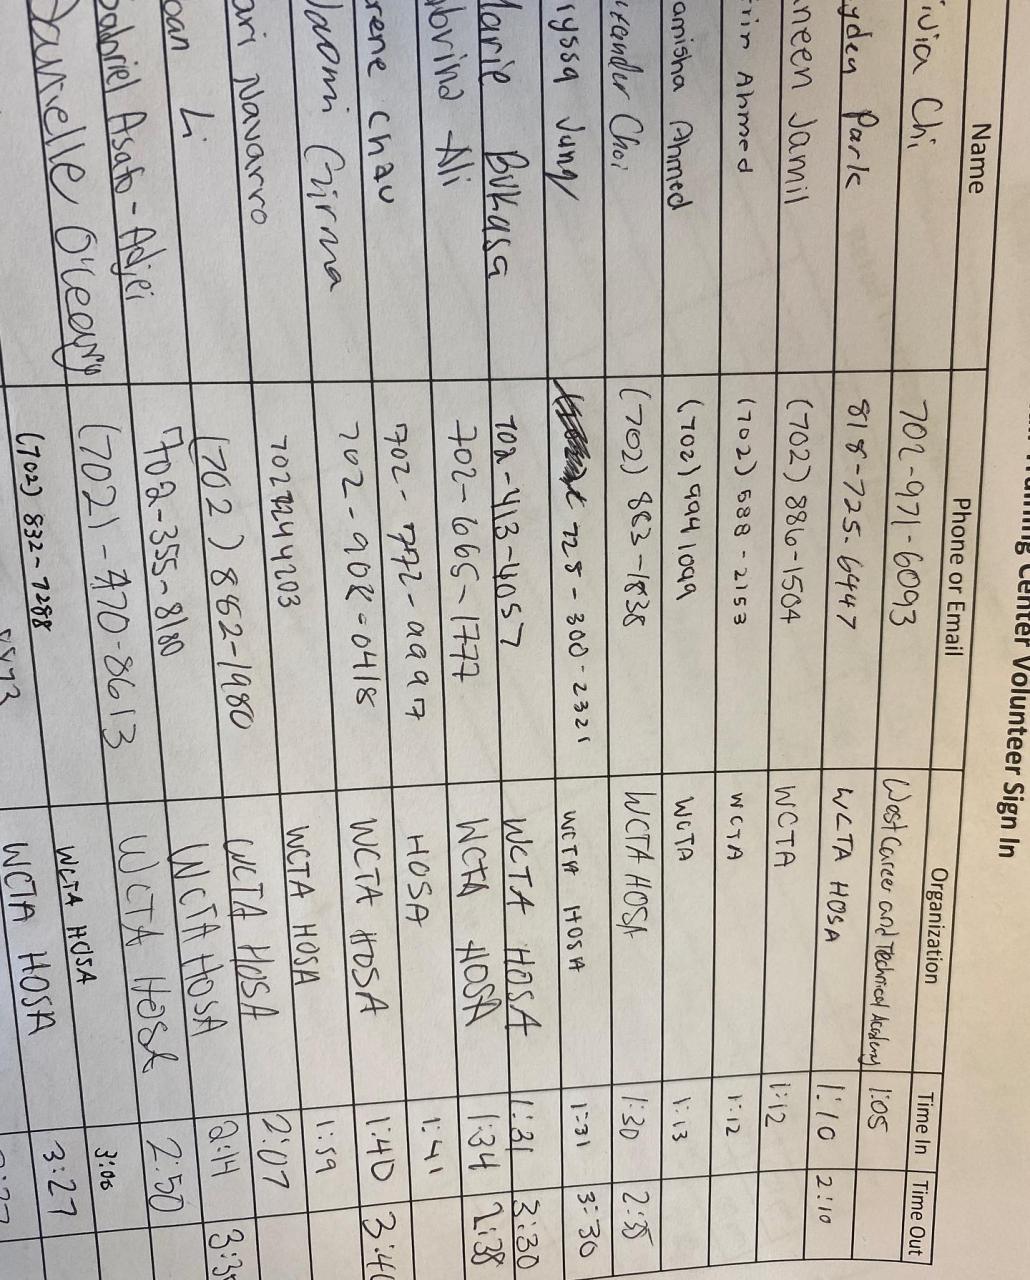 Training Center Volunteer Sign In
Name Phone or Email Organization Time In Time Out
ivia Chi 702-971-6093 West Career and Technical Academy 1:05
yden Park 818-725-6447 WCTA HOSA 1:10 2:10
neen Jamil (702) 886-1504 WCTA 1:12
rin Ahmed (702) 588-2153 WCTA 1:12
anisha Ahmed (702) 994 1099 WCTA 1:13
Choi (702) 883-1838 WCTA HOSA 1:30 2:35
yssa Jung 725-300-2321 WCTA HOSA 1:31 3:30
Marie Bukasa 702-413-4057 WCTA HOSA 1:31 3:30
abrina Ali 702-665-1777 WCTA HOSA 1:34 2:38
rene Chau 702-772-9997 HOSA 1:41
Naomi Girma 702-902-0418 WCTA HOSA 1:40
ari Navarro WCTA HOSA 1:59
oan Li (702) 862-1980 WCTA HOSA 2:07
Gabriel Asafo-Adjei 702-355-8180 WCTA HOSA 2:14
Danielle (702)-470-8613 WCTA HOSA 2:50
(702) 832-7288 WCTA HOSA 3:06
WCTA HOSA 3:27